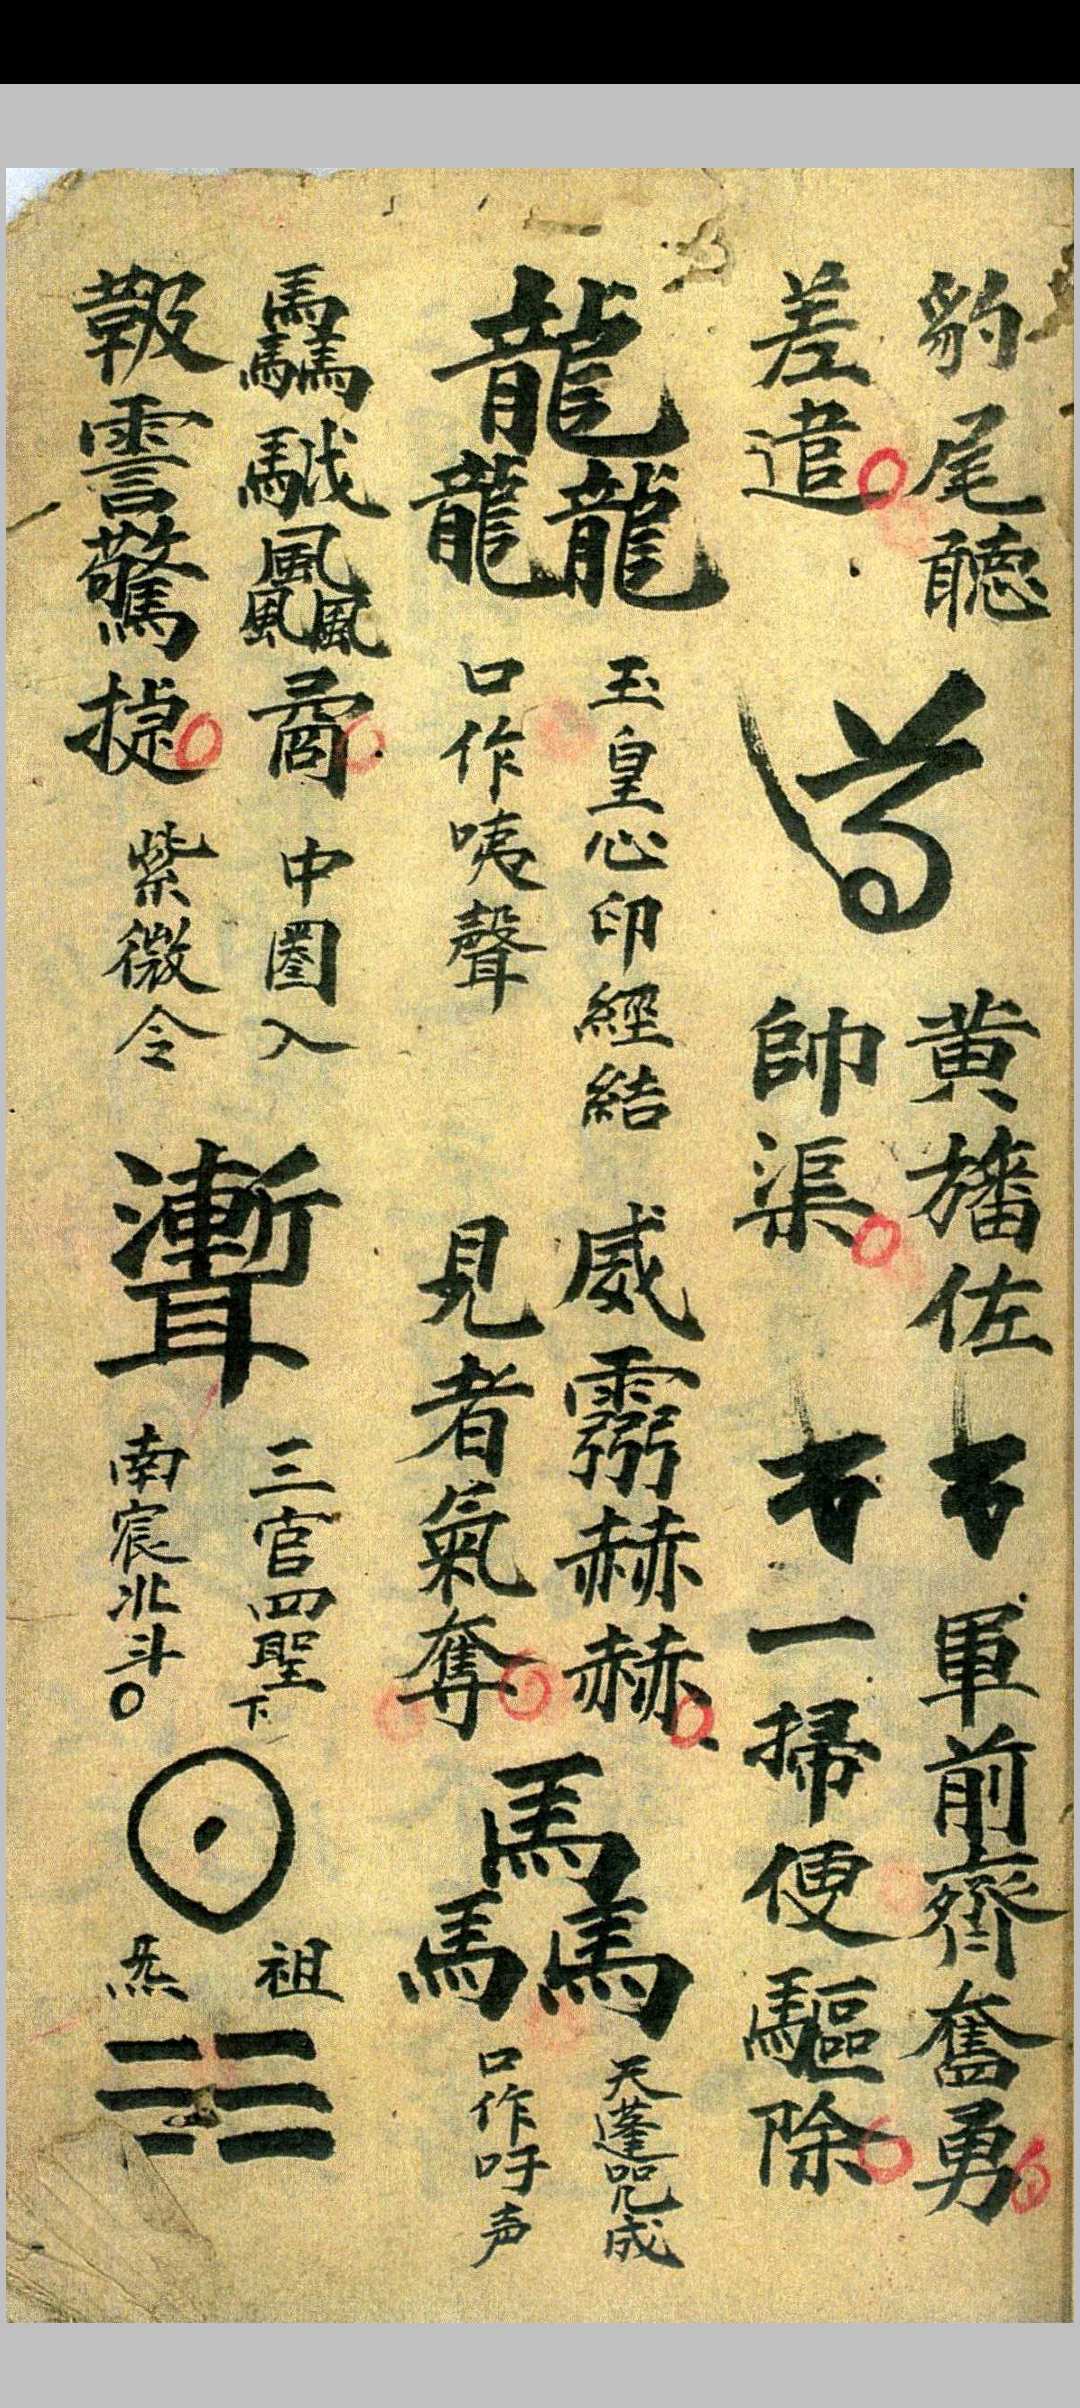 豹尾聽
差遣
黄旛佐
帥渠
軍前齊奮勇
一掃便驅除
龍龍龍
玉皇心印經結
口作咦聲
威靈赫赫
見者氣奪
馬馬馬
天蓬咒成
口作吽声
中圈入
警驚捷
紫微令
三官四聖下
南宸北斗
祖
炁